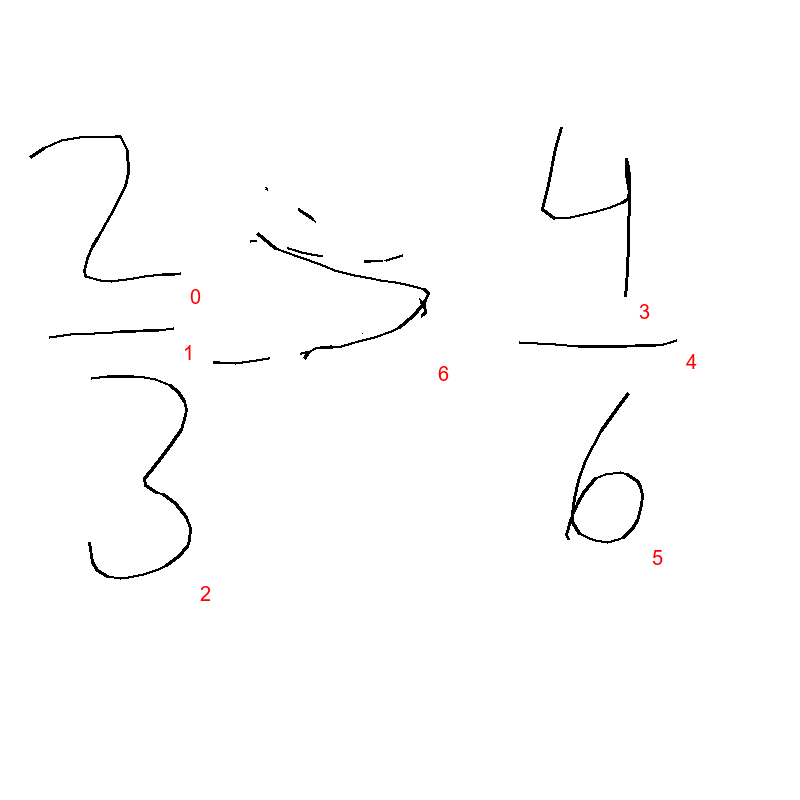 2/3 > 4/6
0
1
2
3
4
5
6